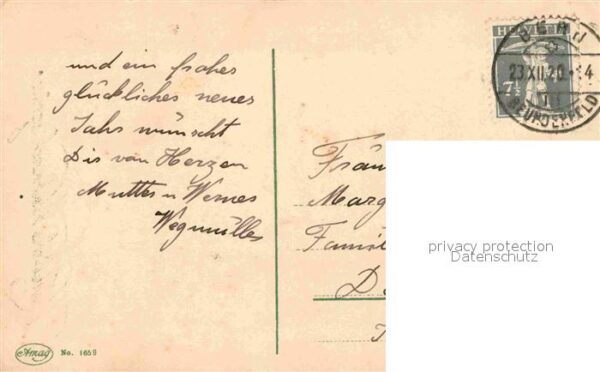 und ein frohes
glückliches neues
Jahr wünscht
Dir von Herzen
Mutter u Werner
Wegmüller
HELVETIA
7½
BERN
23.XII.20.-14
BEUNDENFELD
Fräu
Marg
Famil
privacy protection
Datenschutz
Amag No. 1659